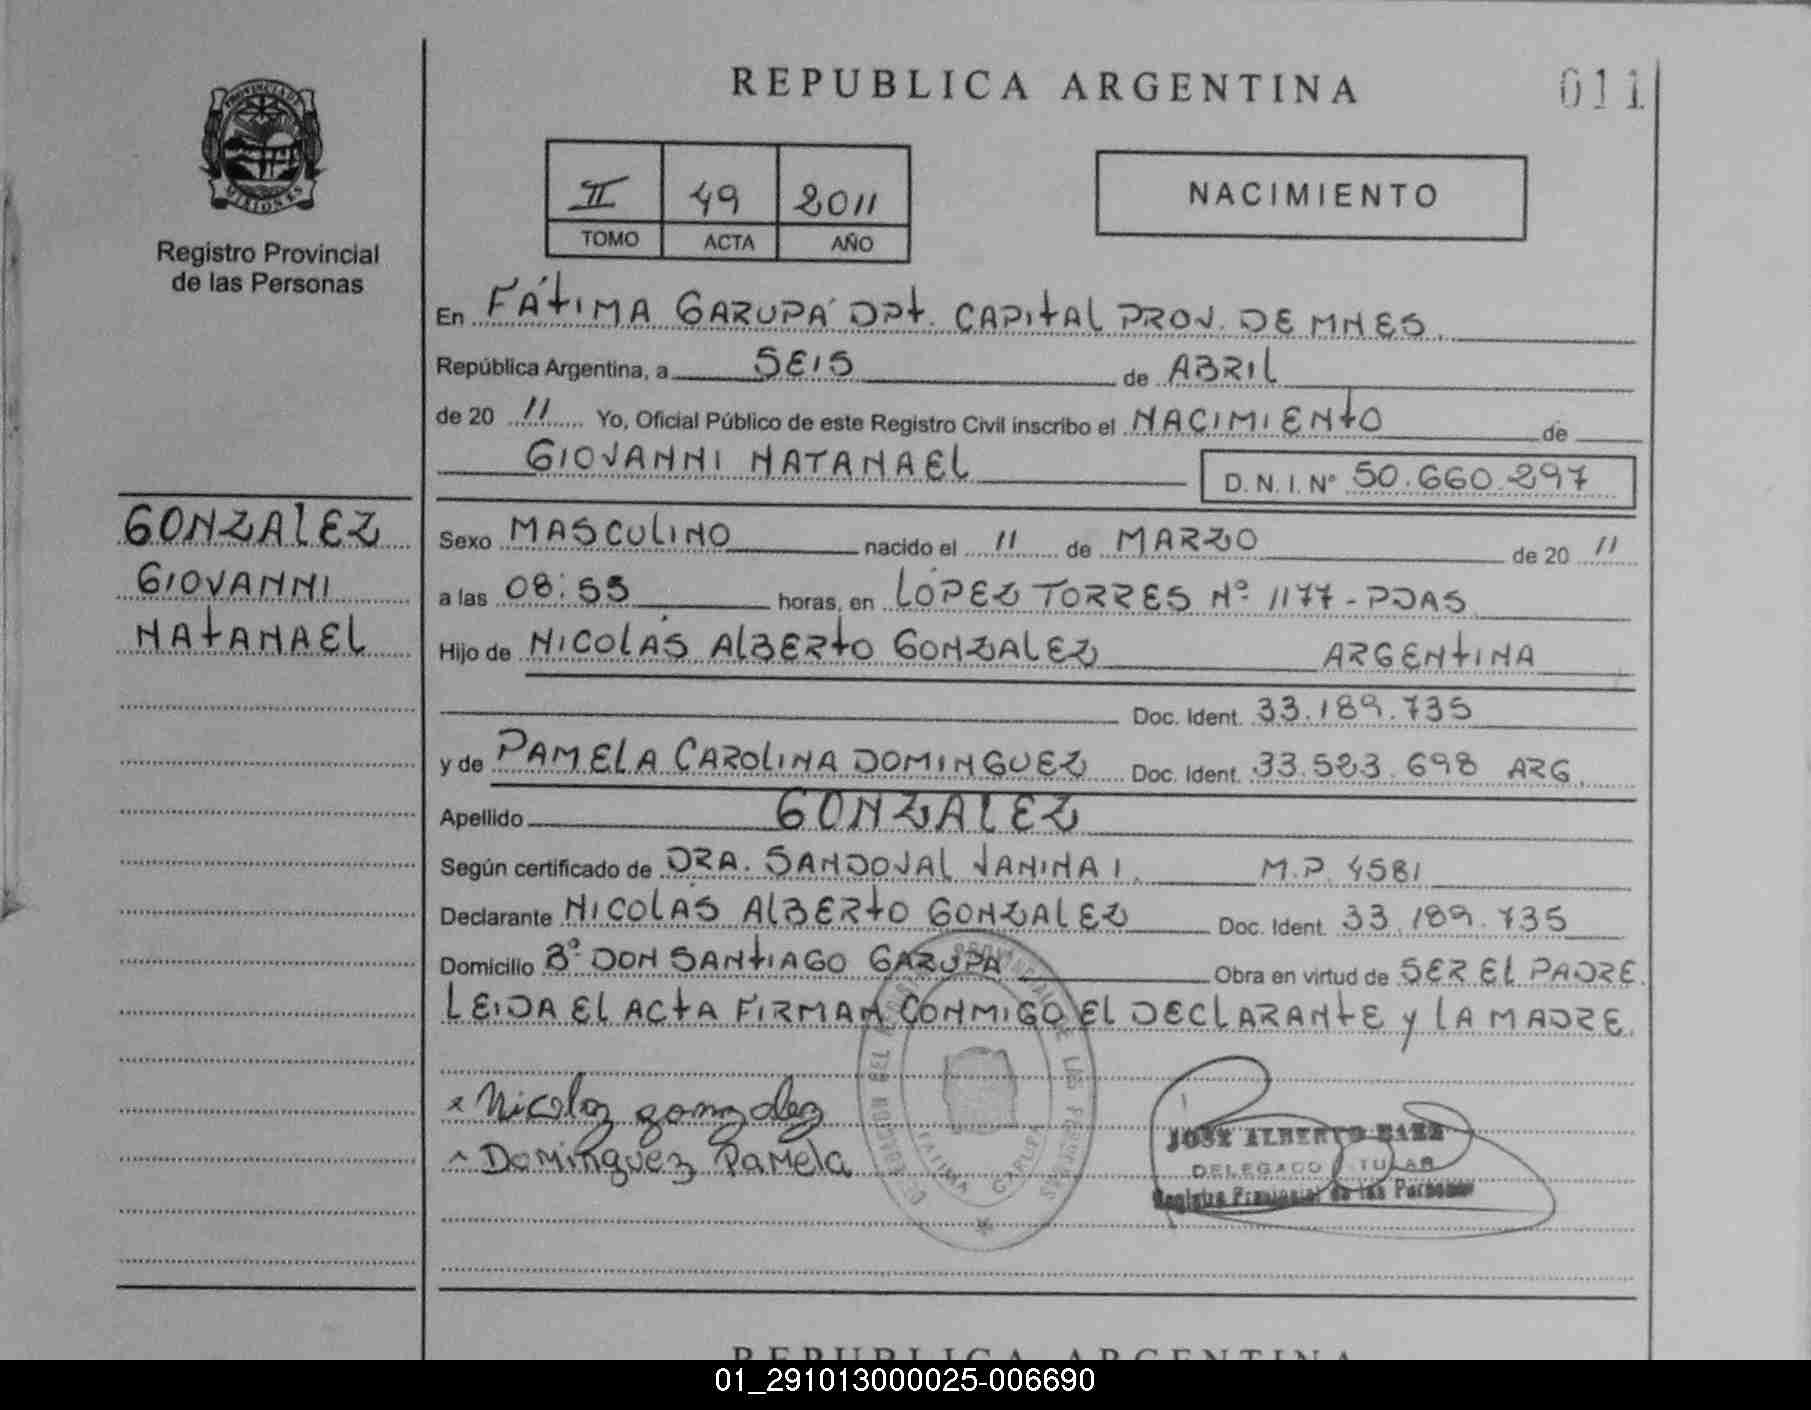 REPUBLICA ARGENTINA
011
PROVINCIA DE
MISIONES
Registro Provincial
de las Personas
II 49 2011
TOMO ACTA AÑO
NACIMIENTO
En FÁTIMA GARUPÁ DPT. CAPITAL PROV. DE MNES.
República Argentina, a SEIS de ABRIL
de 20 11 Yo, Oficial Público de este Registro Civil inscribo el NACIMIENTO de
GIOVANNI NATANAEL D.N.I. N° 50.660.297
GONZALEZ
GIOVANNI
NATANAEL
Sexo MASCULINO nacido el 11 de MARZO de 20 11
a las 08:55 horas, en LÓPEZ TORRES N° 1177 - PDAS
Hijo de NICOLÁS ALBERTO GONZALEZ ARGENTINA
Doc. Ident. 33.189.735
y de PAMELA CAROLINA DOMINGUEZ Doc. Ident. 33.523.698 ARG.
Apellido GONZALEZ
Según certificado de DRA. SANDOVAL VANINA I. M.P. 4581
Declarante NICOLÁS ALBERTO GONZALEZ Doc. Ident. 33.189.735
Domicilio B° DON SANTIAGO GARUPÁ Obra en virtud de SER EL PADRE.
LEIDA EL ACTA FIRMAN CONMIGO EL DECLARANTE y LA MADRE.
x Nicolaz gonzalez
Dominguez Pamela
FATIMA GARUPA
JOSE ALBERTO BAEZ
DELEGADO TITULAR
Registro Provincial de las Personas
REPUBLICA ARGENTINA
01_291013000025-006690